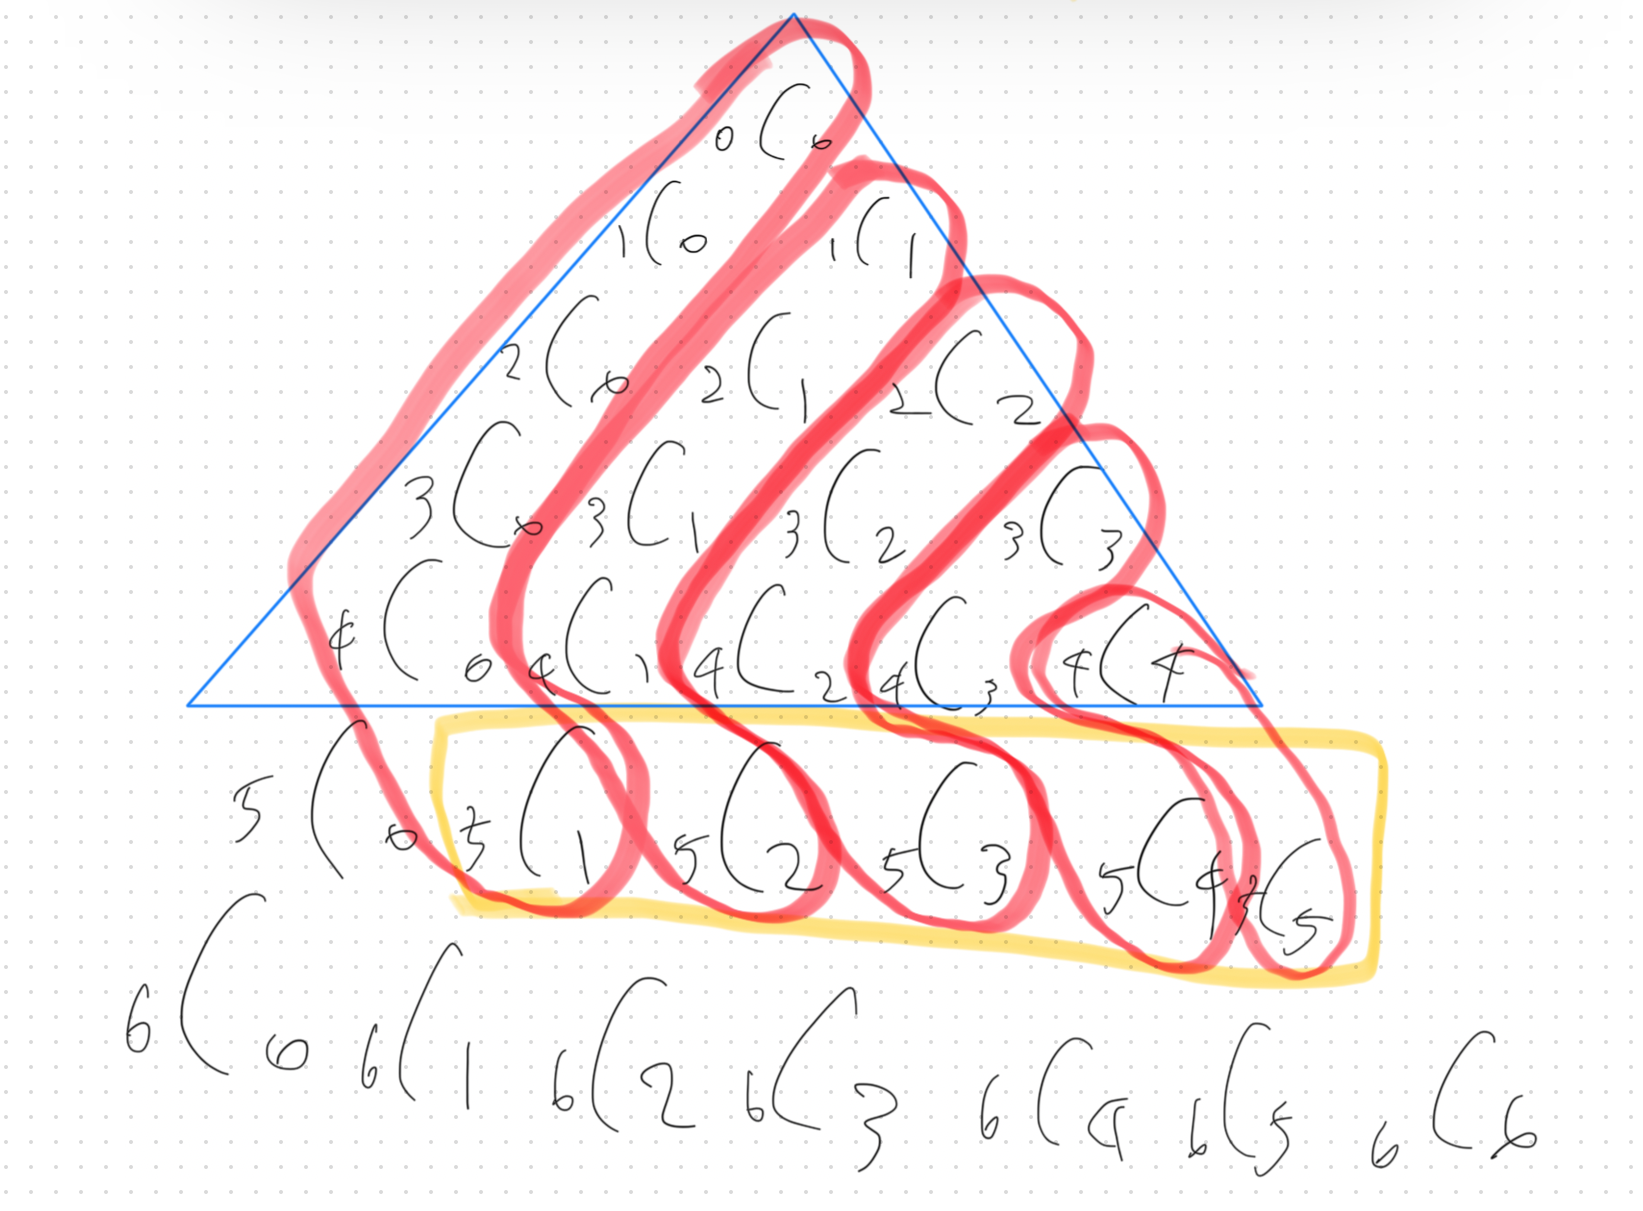 0C0
1C0 1C1
2C0 2C1 2C2
3C0 3C1 3C2 3C3
4C0 4C1 4C2 4C3 4C4
5C0 5C1 5C2 5C3 5C4 5C5
6C0 6C1 6C2 6C3 6C4 6C5 6C6